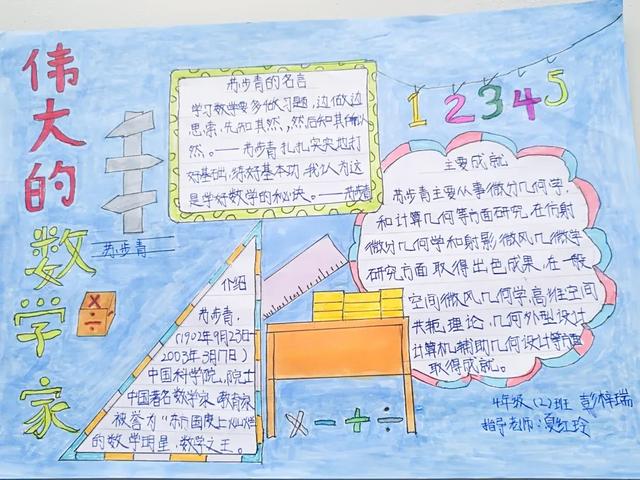 伟大的数学家
苏步青的名言
学习数学要多做习题,边做边
思索,先知其然,然后知其所以
然。——苏步青 扎扎实实地打
好基础,练好基本功,我认为这
是学好数学的秘诀。——苏步青
1 2 3 4 5
苏步青
× ÷
主要成就
苏步青主要从事微分几何学,
和计算几何等方面研究,在仿射
微分几何学和射影微风几微学
研究方面取得出色成果,在一般
空间微风几何学,高维空间
共轭理论,几何外型设计
计算机辅助几何设计等方面
取得成就。
介绍
苏步青,
(1902年9月23日—
2003年3月17日)
中国科学院,院士
中国著名数学家,教育家
被誉为“东方国度上灿烂
的数学明星,数学之王。
× - + ÷
4年级(2)班 彭梓瑞
指导老师:夏红玲